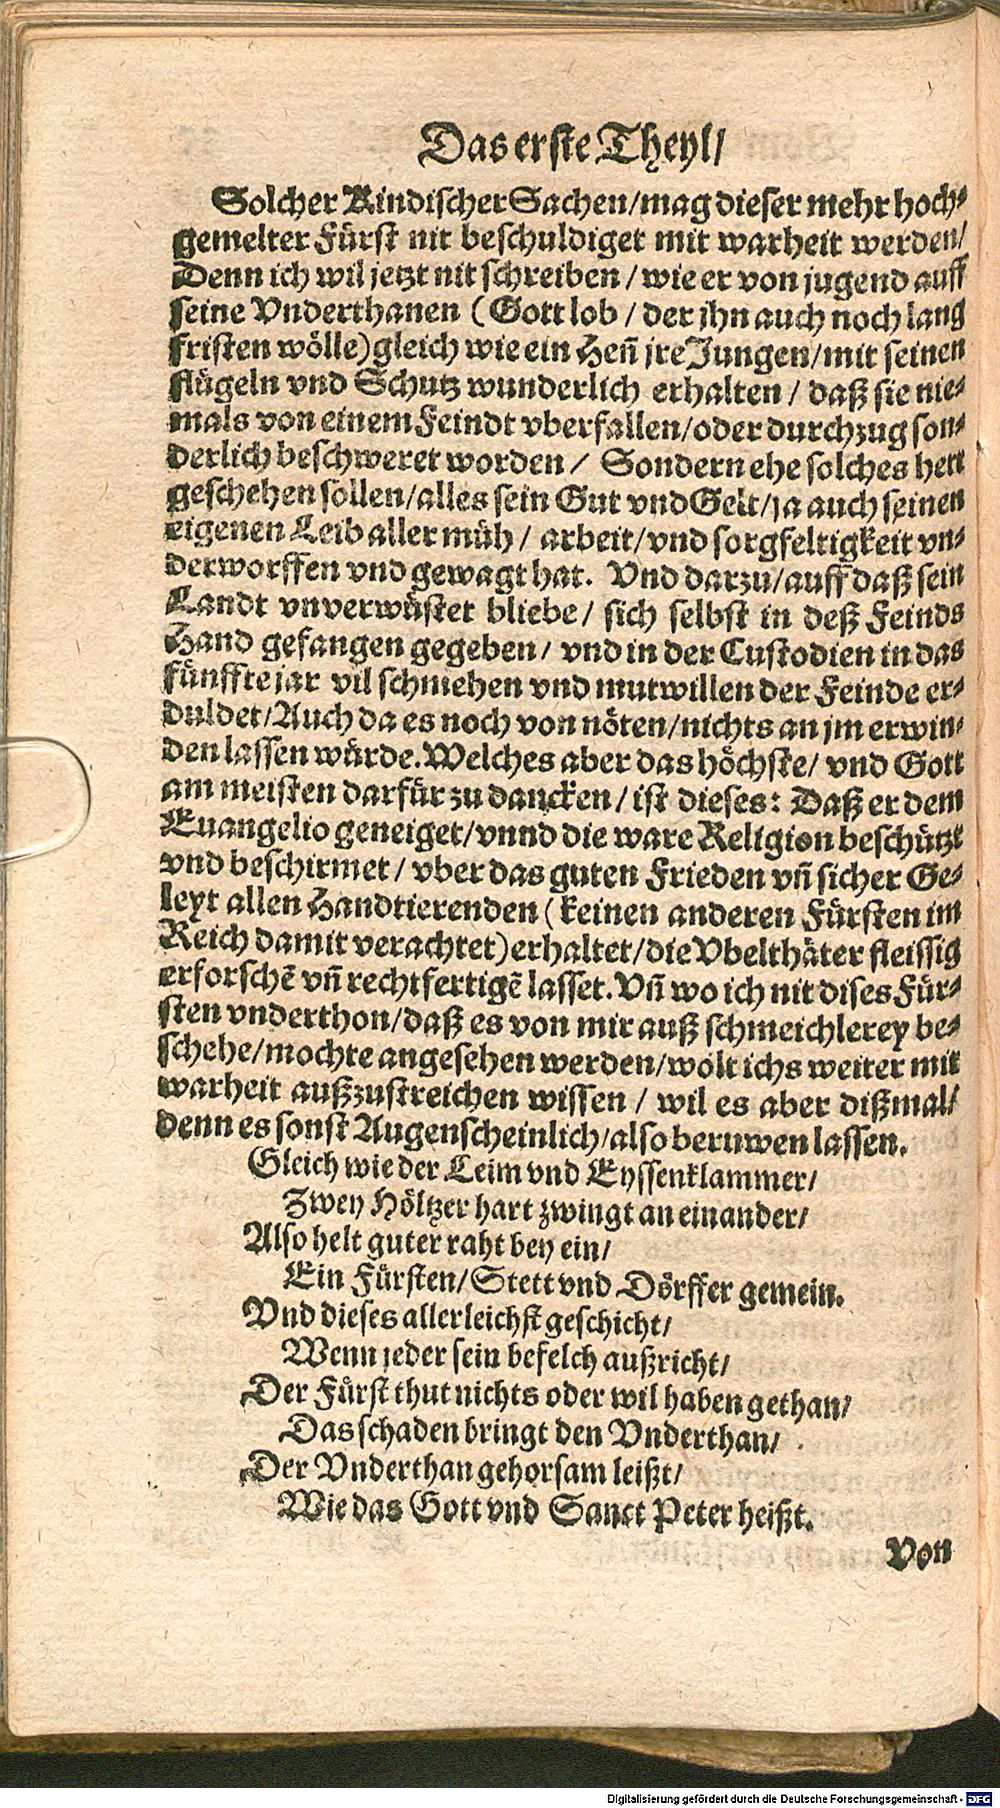 Das erste Theyl/
Solcher Kindischer Sachen/mag dieser mehr hoch-
gemelter Fürst nit beschuldiget mit warheit werden/
Denn ich wil jetzt nit schreiben/wie er von jugend auff
seine Vnderthanen (Gott lob/der jhn auch noch lang
fristen wölle) gleich wie ein Heñ jre Jungen/mit seinen
flügeln vnd Schutz wunderlich erhalten/daß sie nie-
mals von einem Feindt vberfallen/oder durchzug son-
derlich beschweret worden/ Sondern ehe solches hett
geschehen sollen/alles sein Gut vnd Gelt/ja auch seinen
eigenen Leib aller müh/ arbeit/vnd sorgfeltigkeit vn-
derworffen vnd gewagt hat. Vnd darzu/auff daß sein
Landt vnverwüstet bliebe/ sich selbst in deß Feinds
Hand gefangen gegeben/ vnd in der Custodien in das
fünffte jar vil schmehen vnd mutwillen der Feinde er-
duldet/Auch da es noch von nöten/nichts an jm erwin-
den lassen würde. Welches aber das höchste/ vnd Gott
am meisten darfür zu dancken/ist dieses: Daß er dem
Euangelio geneiget/vnnd die ware Religion beschützt
vnd beschirmet/ vber das guten Frieden vñ sicher Ge-
leyt allen Handtierenden (keinen anderen Fürsten im
Reich damit verachtet) erhaltet/die Vbelthäter fleissig
erforschẽ vñ rechtfertigẽ lasset. Vñ wo ich nit dises Für-
sten vnderthon/daß es von mir auß schmeichlerey be-
schehe/mochte angesehen werden/wolt ichs weiter mit
warheit außzustreichen wissen/ wil es aber dißmal/
denn es sonst Augenscheinlich/also beruwen lassen.
Gleich wie der Leim vnd Eyssenklammer/
Zwey Höltzer hart zwingt an einander/
Also helt guter raht bey ein/
Ein Fürsten/Stett vnd Dörffer gemein.
Vnd dieses allerleichst geschicht/
Wenn jeder sein befelch außricht/
Der Fürst thut nichts oder wil haben gethan/
Das schaden bringt den Vnderthan/
Der Vnderthan gehorsam leißt/
Wie das Gott vnd Sanct Peter heißt.
Von
Digitalisierung gefördert durch die Deutsche Forschungsgemeinschaft - DFG